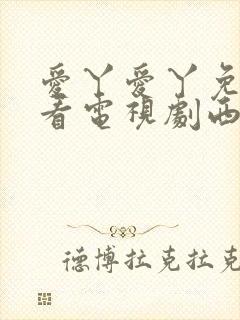 愛丫愛丫免
看電視劇西
德博拉克拉克